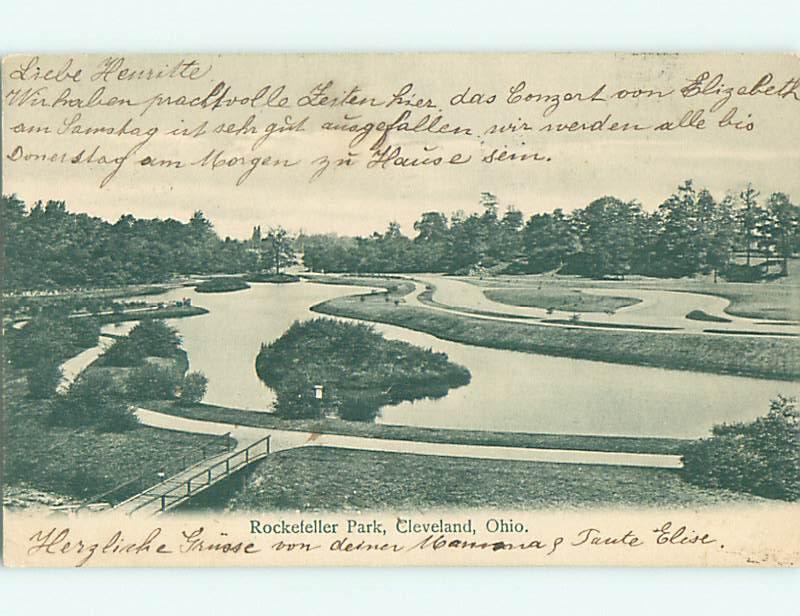 Liebe Henritte
Wir haben prachtvolle Zeiten hier, das Conzert von Elizabeth
am Samstag ist sehr gut ausgefallen, wir werden alle bis
Donerstag am Morgen zu Hause sein.
Rockefeller Park, Cleveland, Ohio.
Herzliche Grüsse von deiner Mamma & Tante Elise.